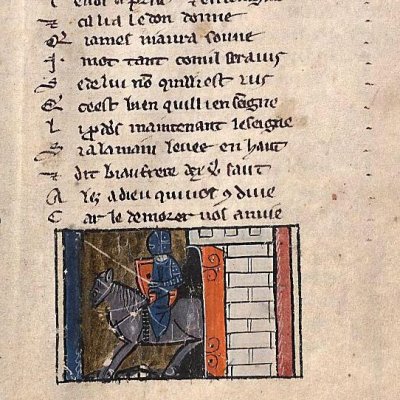 ⁊ cil i a le don done
Q iames n aura sonne
mot tant com il sera vis
S e de lui nō quil li est vis
Q ceest bien quil li enseigne
L i p̄doms maintenant le seigne
S i a la main leuee en haut
⁊ dit biau frere dex vꝰ saut
A lez a dieu qui uos ꝯduie
C ar le demorer uos anuie